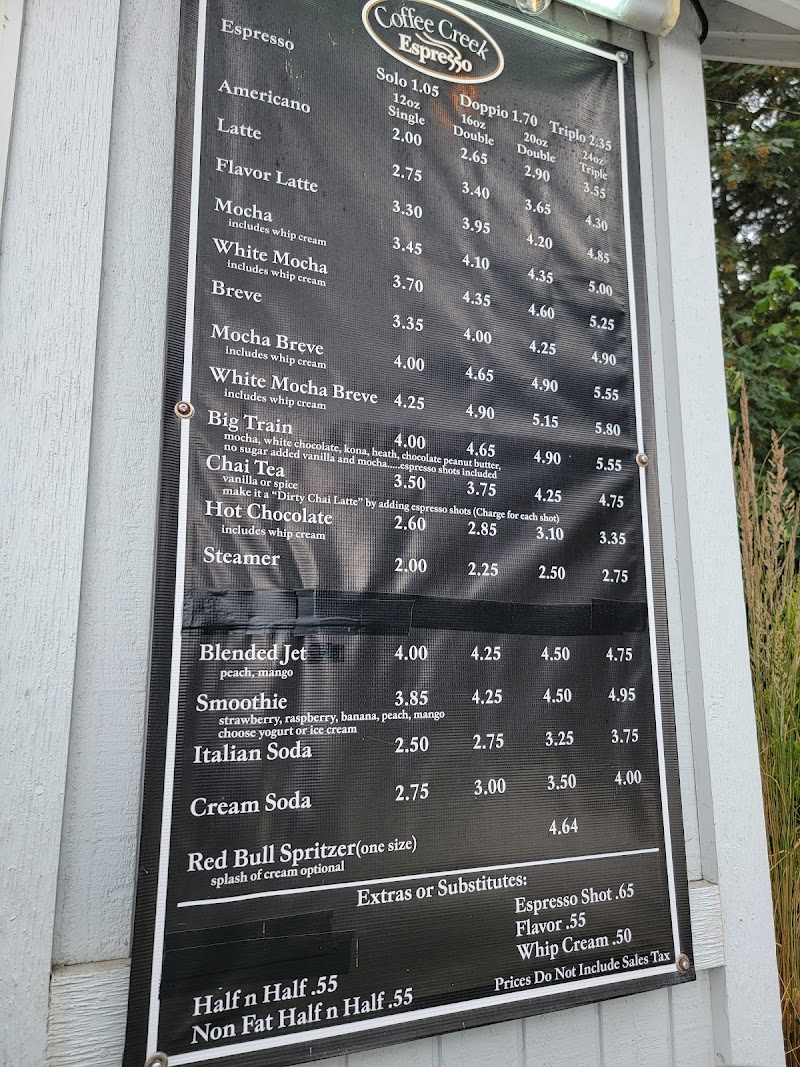 Coffee Creek
Espresso
Espresso Solo 1.05 Doppio 1.70 Triplo 2.35
12oz 16oz 20oz 24oz
Single Double Double Triple
Americano 2.00 2.65 2.90 3.55
Latte 2.75 3.40 3.65 4.30
Flavor Latte 3.30 3.95 4.20 4.85
Mocha 3.45 4.10 4.35 5.00
includes whip cream
White Mocha 3.70 4.35 4.60 5.25
includes whip cream
Breve 3.35 4.00 4.25 4.90
Mocha Breve 4.00 4.65 4.90 5.55
includes whip cream
White Mocha Breve 4.25 4.90 5.15 5.80
includes whip cream
Big Train 4.00 4.65 4.90 5.55
mocha, white chocolate, kona, heath, chocolate peanut butter,
no sugar added vanilla and mocha.....espresso shots included
Chai Tea 3.50 3.75 4.25 4.75
vanilla or spice
make it a "Dirty Chai Latte" by adding espresso shots (Charge for each shot)
Hot Chocolate 2.60 2.85 3.10 3.35
includes whip cream
Steamer 2.00 2.25 2.50 2.75
Blended Jet 4.00 4.25 4.50 4.75
peach, mango
Smoothie 3.85 4.25 4.50 4.95
strawberry, raspberry, banana, peach, mango
choose yogurt or ice cream
Italian Soda 2.50 2.75 3.25 3.75
Cream Soda 2.75 3.00 3.50 4.00
Red Bull Spritzer(one size) 4.64
splash of cream optional
Extras or Substitutes:
Espresso Shot .65
Flavor .55
Whip Cream .50
Half n Half .55
Non Fat Half n Half .55
Prices Do Not Include Sales Tax